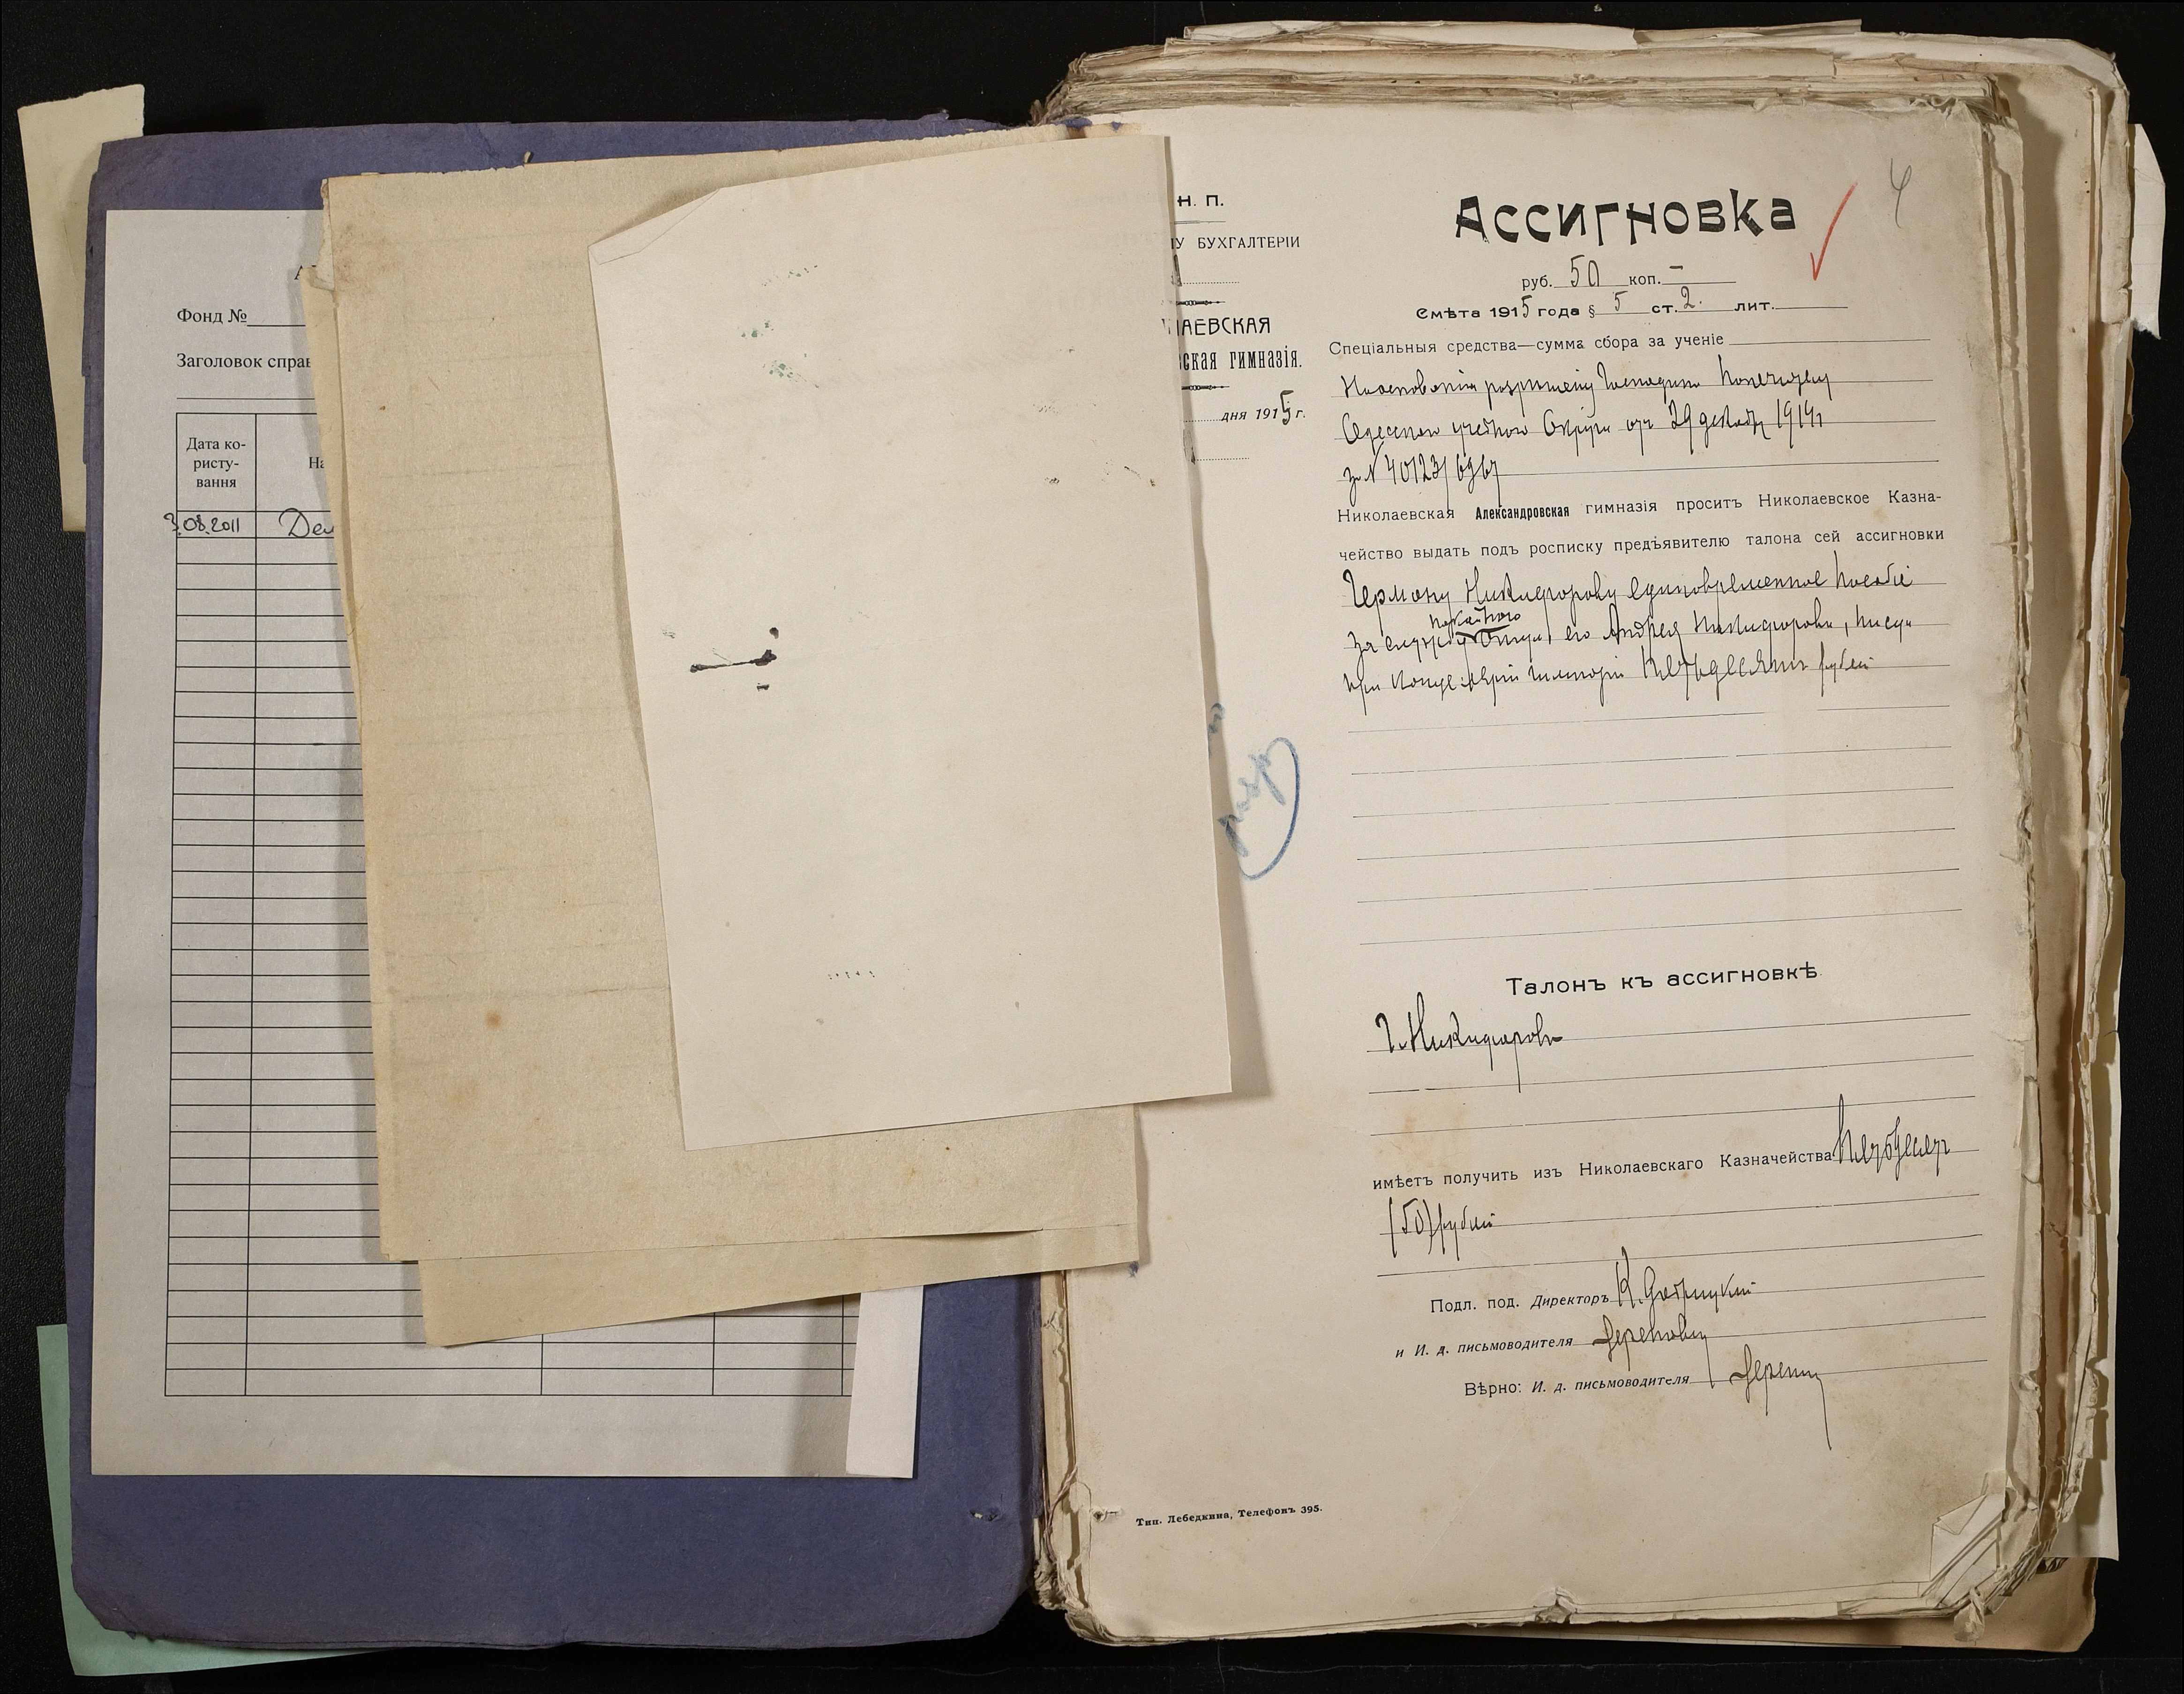 Фонд №
Заголовок справ
Дата ко-
ристу-
вання
На
3.08.2011
Н. П.
У БУХГАЛТЕРІИ
ЛАЕВСКАЯ
ская гимназія.
дня 1915 г.
Ассигновка
4
руб. 50 коп. —
Смѣта 1915 года § 5 ст. 2. лит.
Спеціальныя средства—сумма сбора за ученіе
Господина
Одесского Округа от 29 декабр 1914 г
за № 40123/6967
Николаевская Александровская гимназія проситъ Николаевское Казна-
чейство выдать подъ росписку предъявителю талона сей ассигновки
Герману Никифорову единовременное пособіе
покойного
за службу отца его Андрея Никифорова, писца
при гимназіи пятьдесятъ рублей
Талонъ къ ассигновкѣ
Г. Никифоровъ
имѣетъ получить изъ Николаевскаго Казначейства пятьдесят
(50) рублей
Подл. под. Директоръ
и И. д. письмоводителя
Вѣрно: И. д. письмоводителя
Тип. Лебедкина, Телефонъ 395.